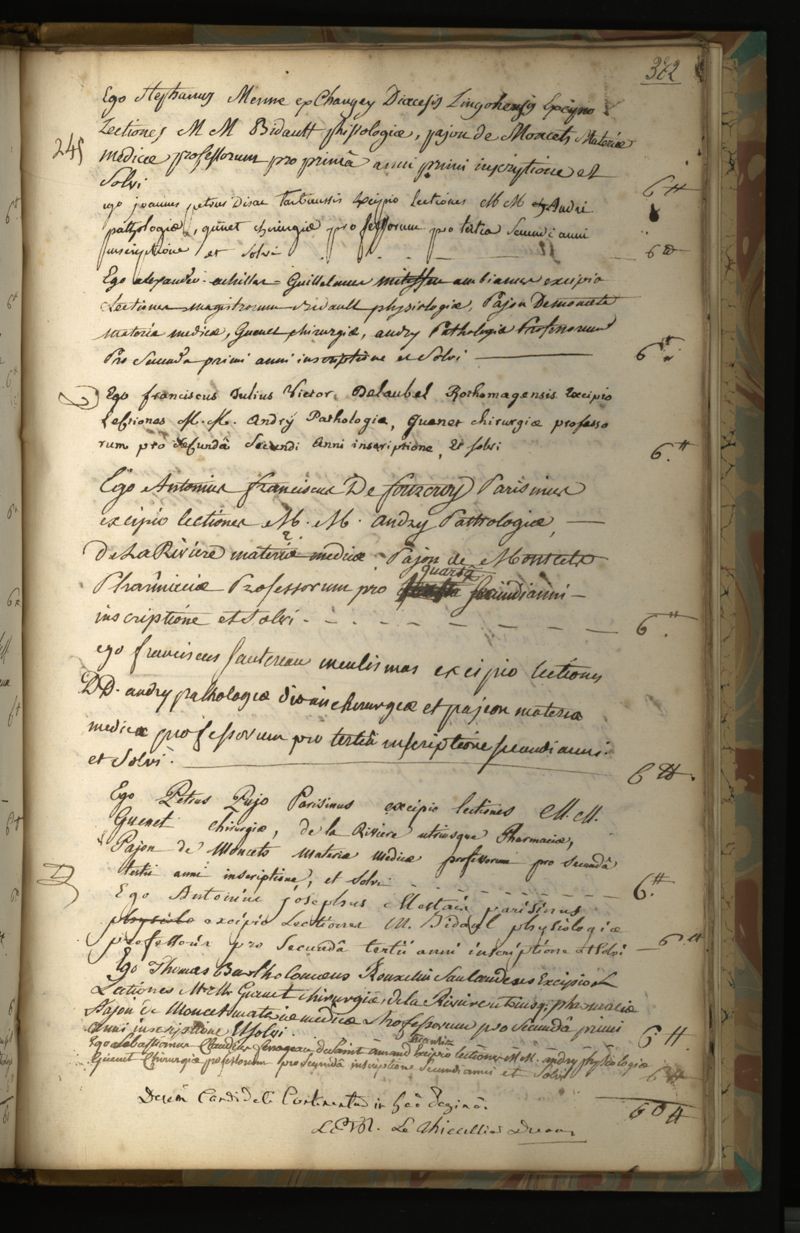 382
Ego Stephanus Menne ex Changey Diœcesis Lingonensis Excipio
245
Lectiones M M Bidault phisiologiæ, pajon de Moncets Materiæ
medicæ professorum pro primâ anni primi inscriptione et
Solvi
6 ₶
ego joannes petrus Disac excipio lectiones M M Andri
pathologiæ, guenet chirurgiæ professorum pro tertia Secundi anni
inscriptione et Solvi
6 ₶
Ego alexander achilles Guillelmus ambianus excipio
Lectiones magistrorum Bidault physiologiæ, Pajon Demoncets
materiæ medicæ, Guenet chirurgiæ, andry Pathologiæ Professorum
Pro Secunda primi anni inscriptione et Solvi
6 ₶
Ego franciscus Julius Victor Delaubel Rothomagensis Excipio
Lectiones M. M. Andry Pathologiæ, Guenet chirurgiæ professo
rum pro secundâ Secundi Anni inscriptione, Et solvi
6 ₶
Ego Antonius franciscus De fourcroy Parisinus
excipio lectiones M. M. andry Pathologiæ,
De La Riviere materiæ medicæ Pajon de Moncets
quarta
Pharmaciæ Professorum pro secundi anni
inscriptione et Solvi
6 ₶
ego franciscus Sautereau excipio lectiones
DD. andry pathologiæ chirurgiæ et pajeon materiæ
medicæ professorum pro tertiâ inscriptione secundi anni
et Solvi.
6 ₶.
Ego Petrus Pujo Parisinus excipio lectiones M. M.
Guenet chirurgiæ, de la Riviere utriusque Pharmaciæ,
Pajon de Moncets Materiæ Medicæ professorum pro secundâ
tertii anni inscriptione, et solvi
6 ₶
Ego Antonius josephus parisinus
excipio Lectiones M. Bidaul physiologiæ
professoris pro Secundâ tertii anni inscriptione et Solvi
6 ₶
Ego Thomas Bartholomæus Excipio
Lectiones M. M. Guenet chirurgiæ de la Riviere utriusq. pharmaciæ
Pajon de Moncets materiæ medicæ Professorum pro Secundâ primi
anni inscriptione Et Solvi.
6 ₶.
Ego Sebastianus Claudius excipio lectiones M. M. andry physiologiæ
Guenet Chirurgiæ professorum pro Secunda inscriptione Secundi anni et Solvi
6 ₶
Decem Candidati Continentur in hâc Paginâ.
60 ₶
Decan